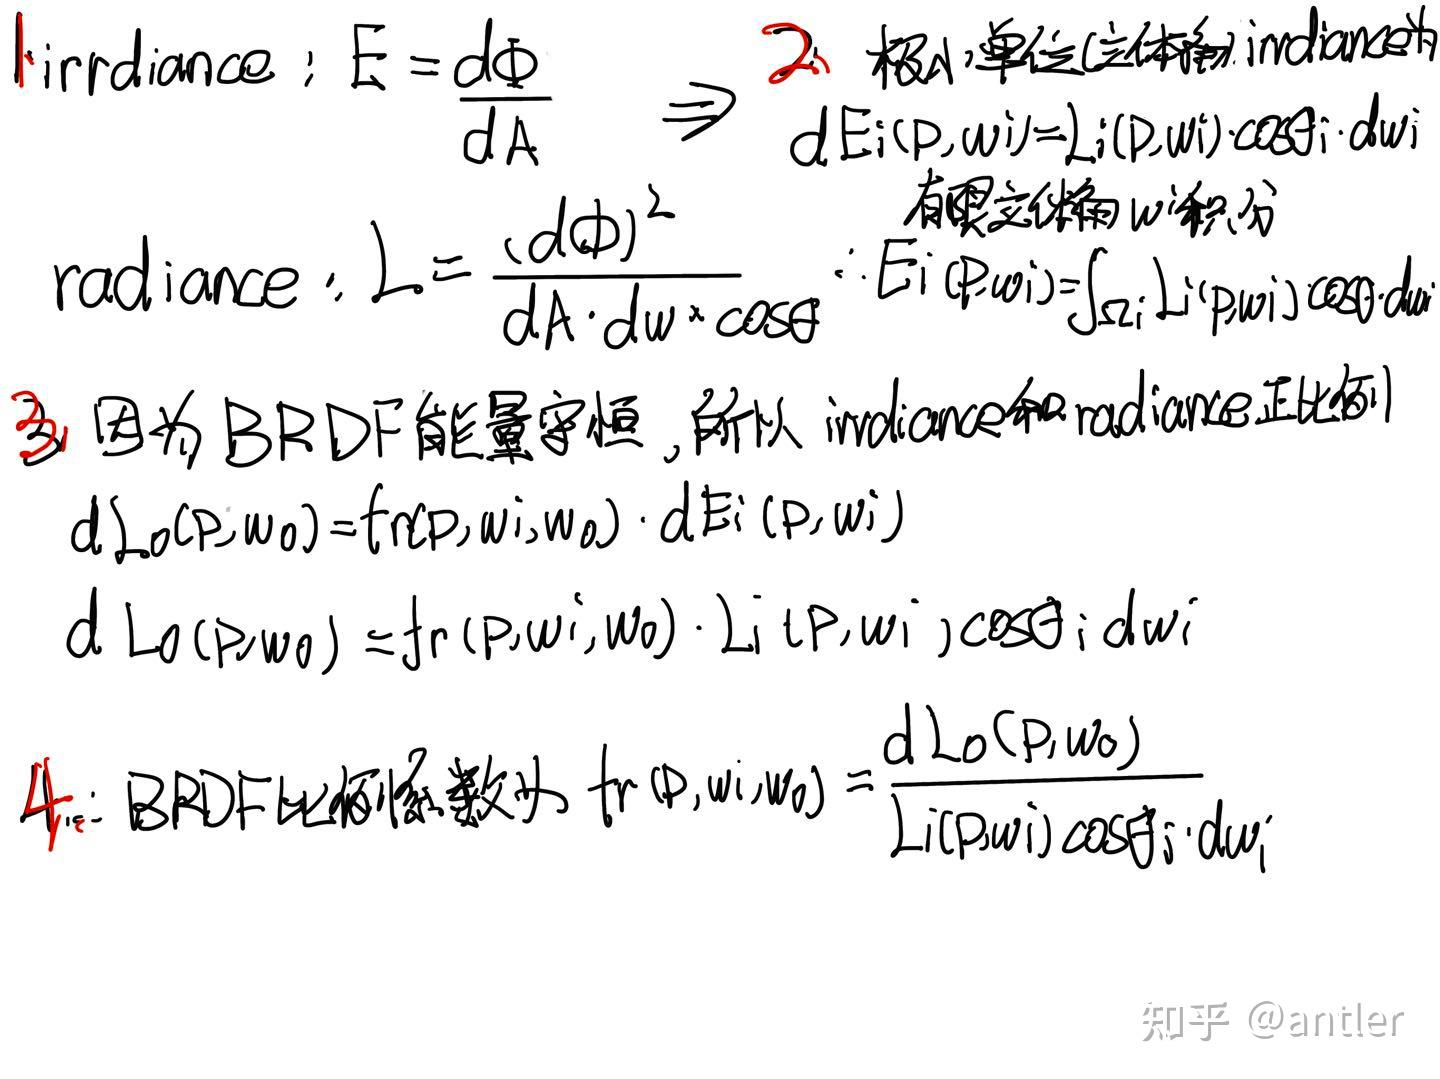 1. irrdiance : E = dΦ / dA
radiance : L = (dΦ)² / dA · dw * cosθ
⇒
2. 极小单位(立体角) irrdiance为
dEi(p,wi)=Li(p,wi)·cosθi·dwi
有限立体角wi积分
∴Ei(p,wi)=∫Ωi Li(p,wi)cosθ·dwi
3. 因为BRDF能量守恒,所以 irrdiance和radiance正比例
dLo(p,wo)=fr(p,wi,wo)·dEi(p,wi)
dLo(p,wo)=fr(p,wi,wo)·Li(p,wi)cosθi dwi
4. ∴ BRDF比例系数为 fr(p,wi,wo) = dLo(p,wo) / Li(p,wi)cosθi·dwi
知乎 @antler